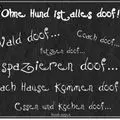 Ohne Hund ist alles doof!
Wald doof... Couch doof...
sitzen doof...
spazieren doof...
nach Hause kommen doof...
Essen und kochen doof...